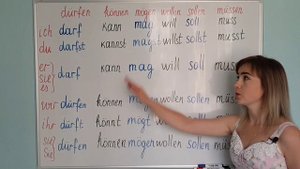 dürfen können mögen wollen sollen müssen
ich darf kann mag will soll muss
du darfst kannst magst willst sollst musst
er
sie darf kann mag will soll
es
wir dürfen können mögen wollen sollen
ihr dürft könnt mögt wollt sollt
sie dürfen können mögen wollen sollen
Sie